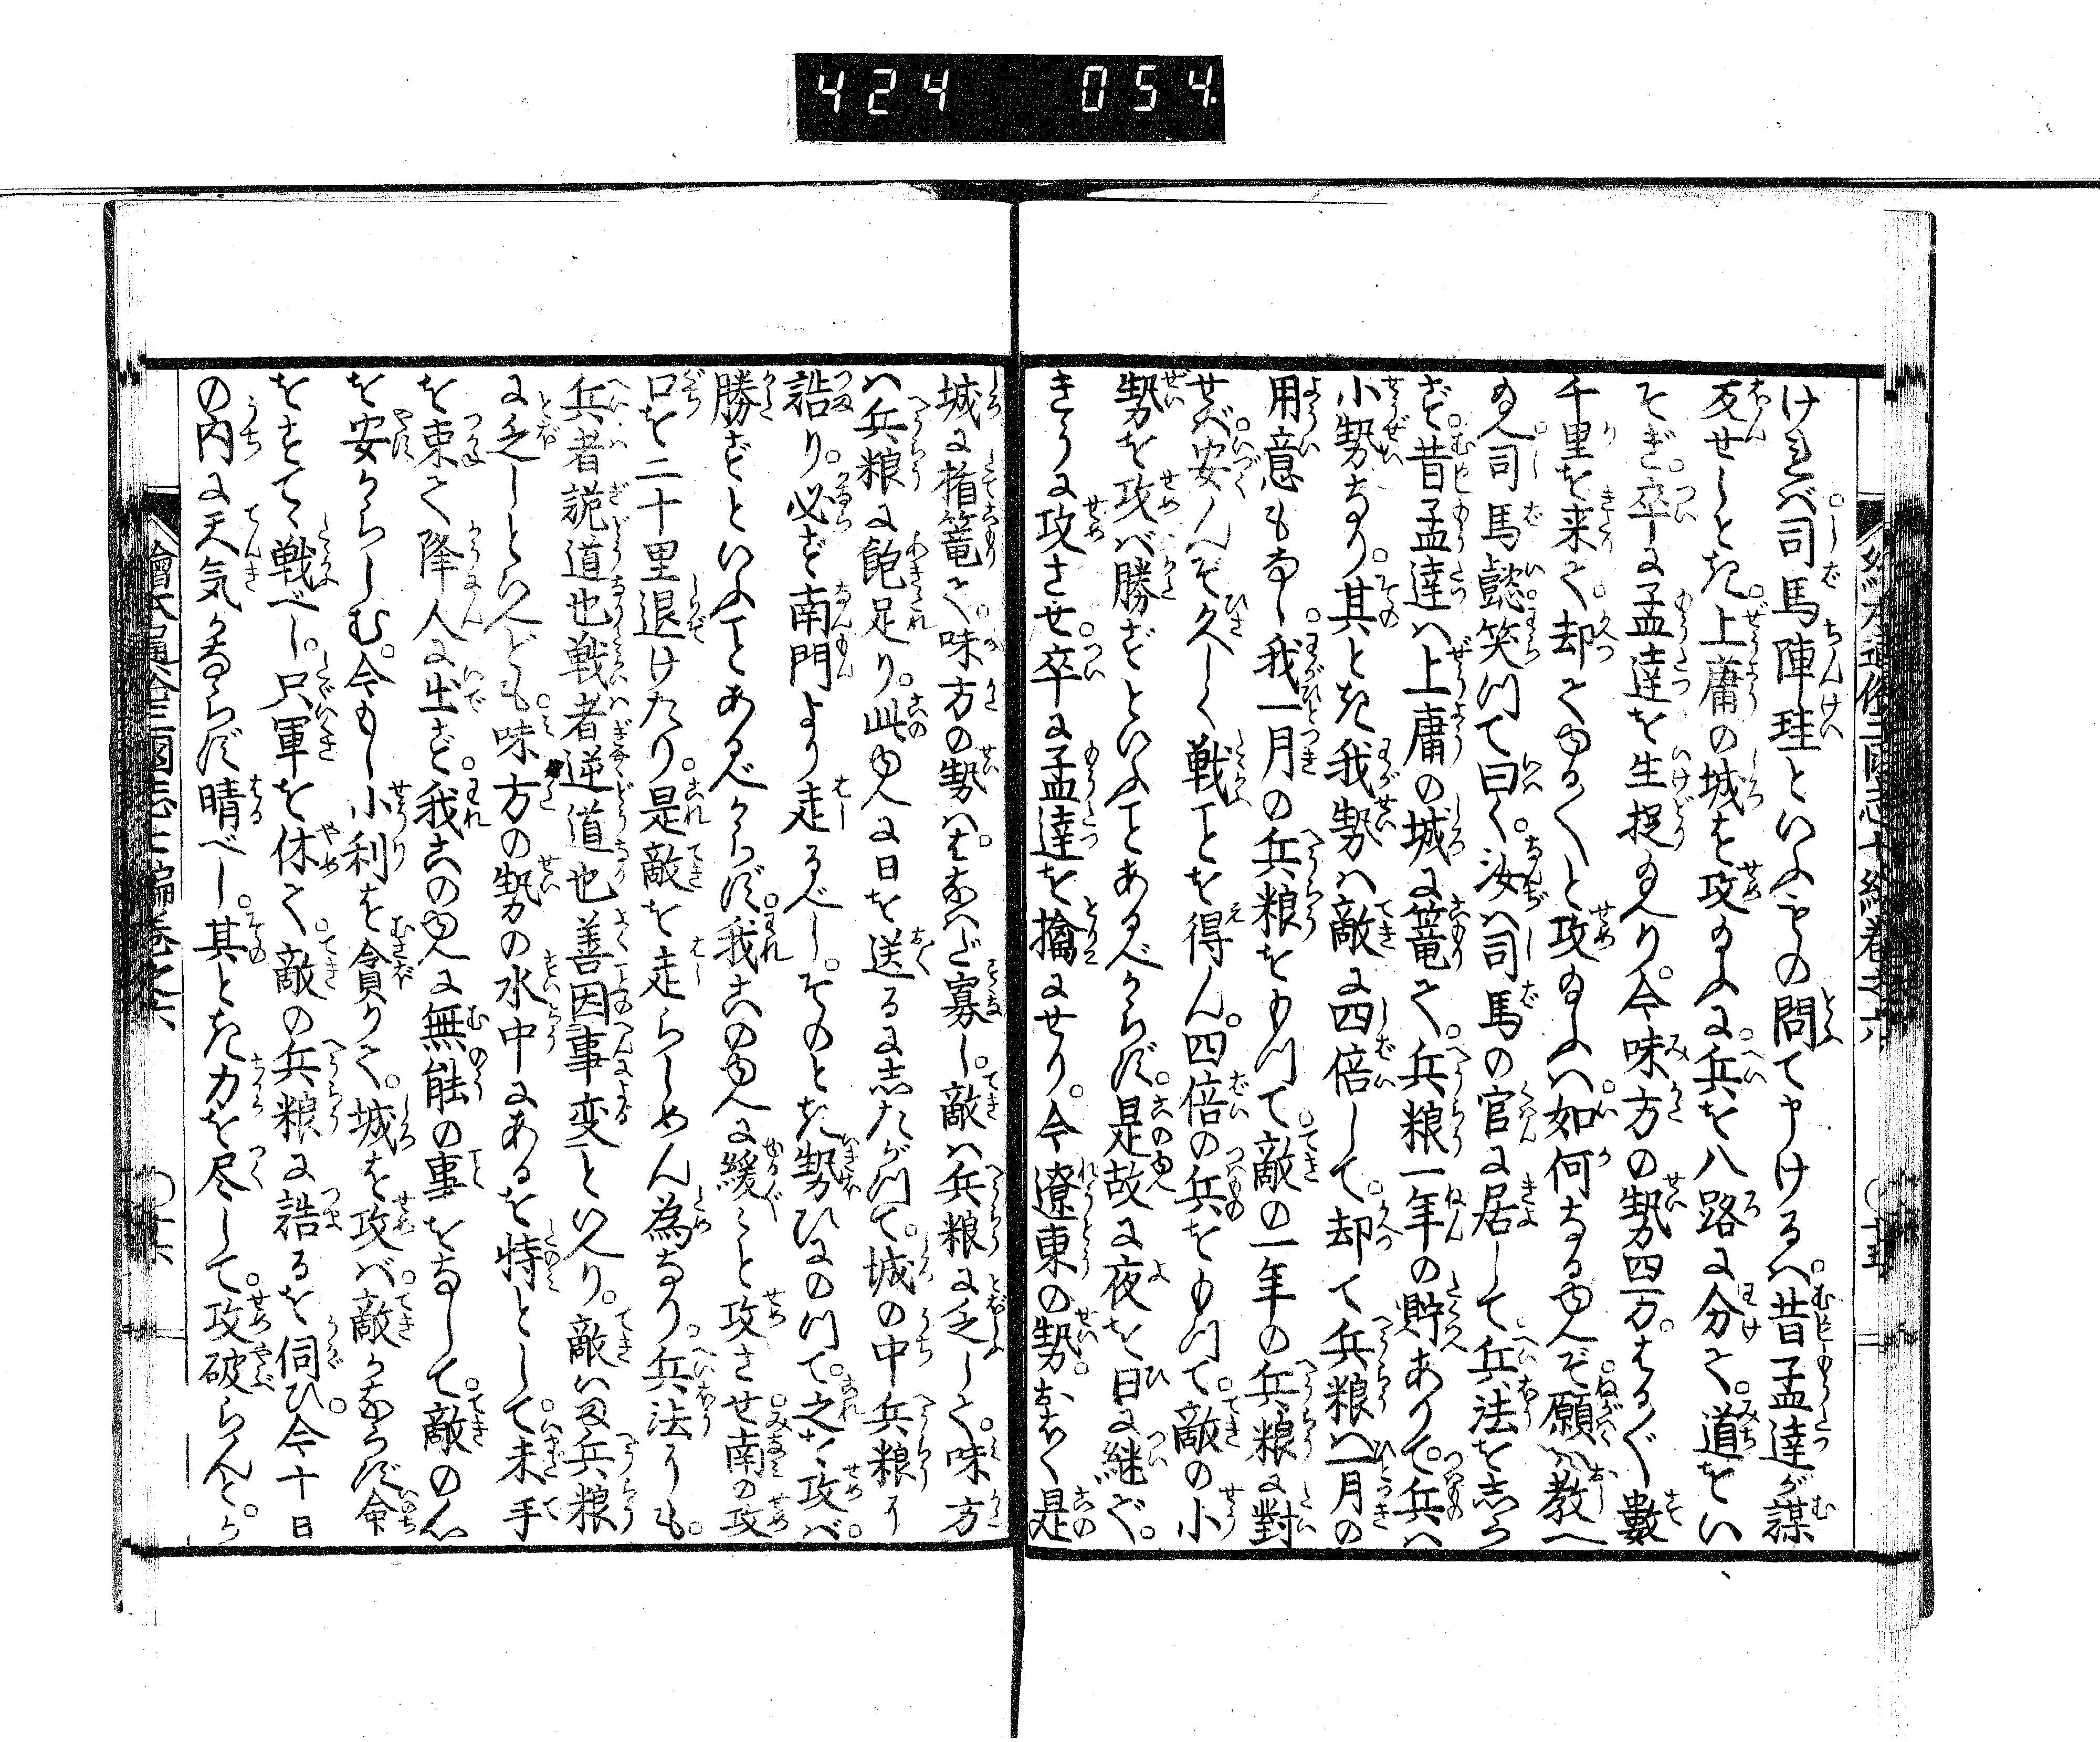 424 054
けれバ司馬陣珪といふもの問て申けるハ昔孟達が謀
反せしとき上庸の城を攻給ふに兵を八路に分て道をい
そぎ卒に孟達を生捉給へり今味方の勢四万はる〲數
千里を来て却てゆる〱と攻給ふハ如何なるゆへぞ願ハ教へ
給へ司馬懿笑て曰く汝ハ司馬の官に居して兵法をしら
ず昔孟達ハ上庸の城に篭て兵粮一年の貯ありて兵ハ
小勢なり其とき我勢ハ敵に四倍して却て兵粮ハ一月の
用意もなし我一月の兵粮をもつて敵の一年の兵粮に對
せバ安んぞ久しく戦ことを得ん四倍の兵をもつて敵の小
勢を攻バ勝ずといふことあるべからず是故に夜を日に継ぐ
きうに攻させ卒に孟達を擒にせり今遼東の勢おほく是
城に楯篭て味方の勢ハはなハだ寡し敵ハ兵粮に乏して味方
ハ兵粮に飽足り此ゆへに日を送るにしたがつて城の中兵粮に
詰り必ず南門より走るべしそのとき勢ひにのつて之を攻バ
勝ずといふことあるべからず我このゆへに緩〻と攻させ南の攻
口を二十里退けたり是敵を走らしめん為なり兵法にも
兵者詭道也戦者逆道也善因事変といへり敵ハ兵粮
に乏しといへども味方の勢の水中にあるを恃として未手
を束て降人に出ず我このゆへに無能の事をなして敵の心
を安からしむ今もし小利を貪りて城を攻バ敵かならず命
をすてゝ戦べし只軍を休て敵の兵粮に詰るを伺ひ今十日
の内に天気かならず晴べし其とき力を尽して攻破らんとぞ
繪本通俗三國志七編巻之六